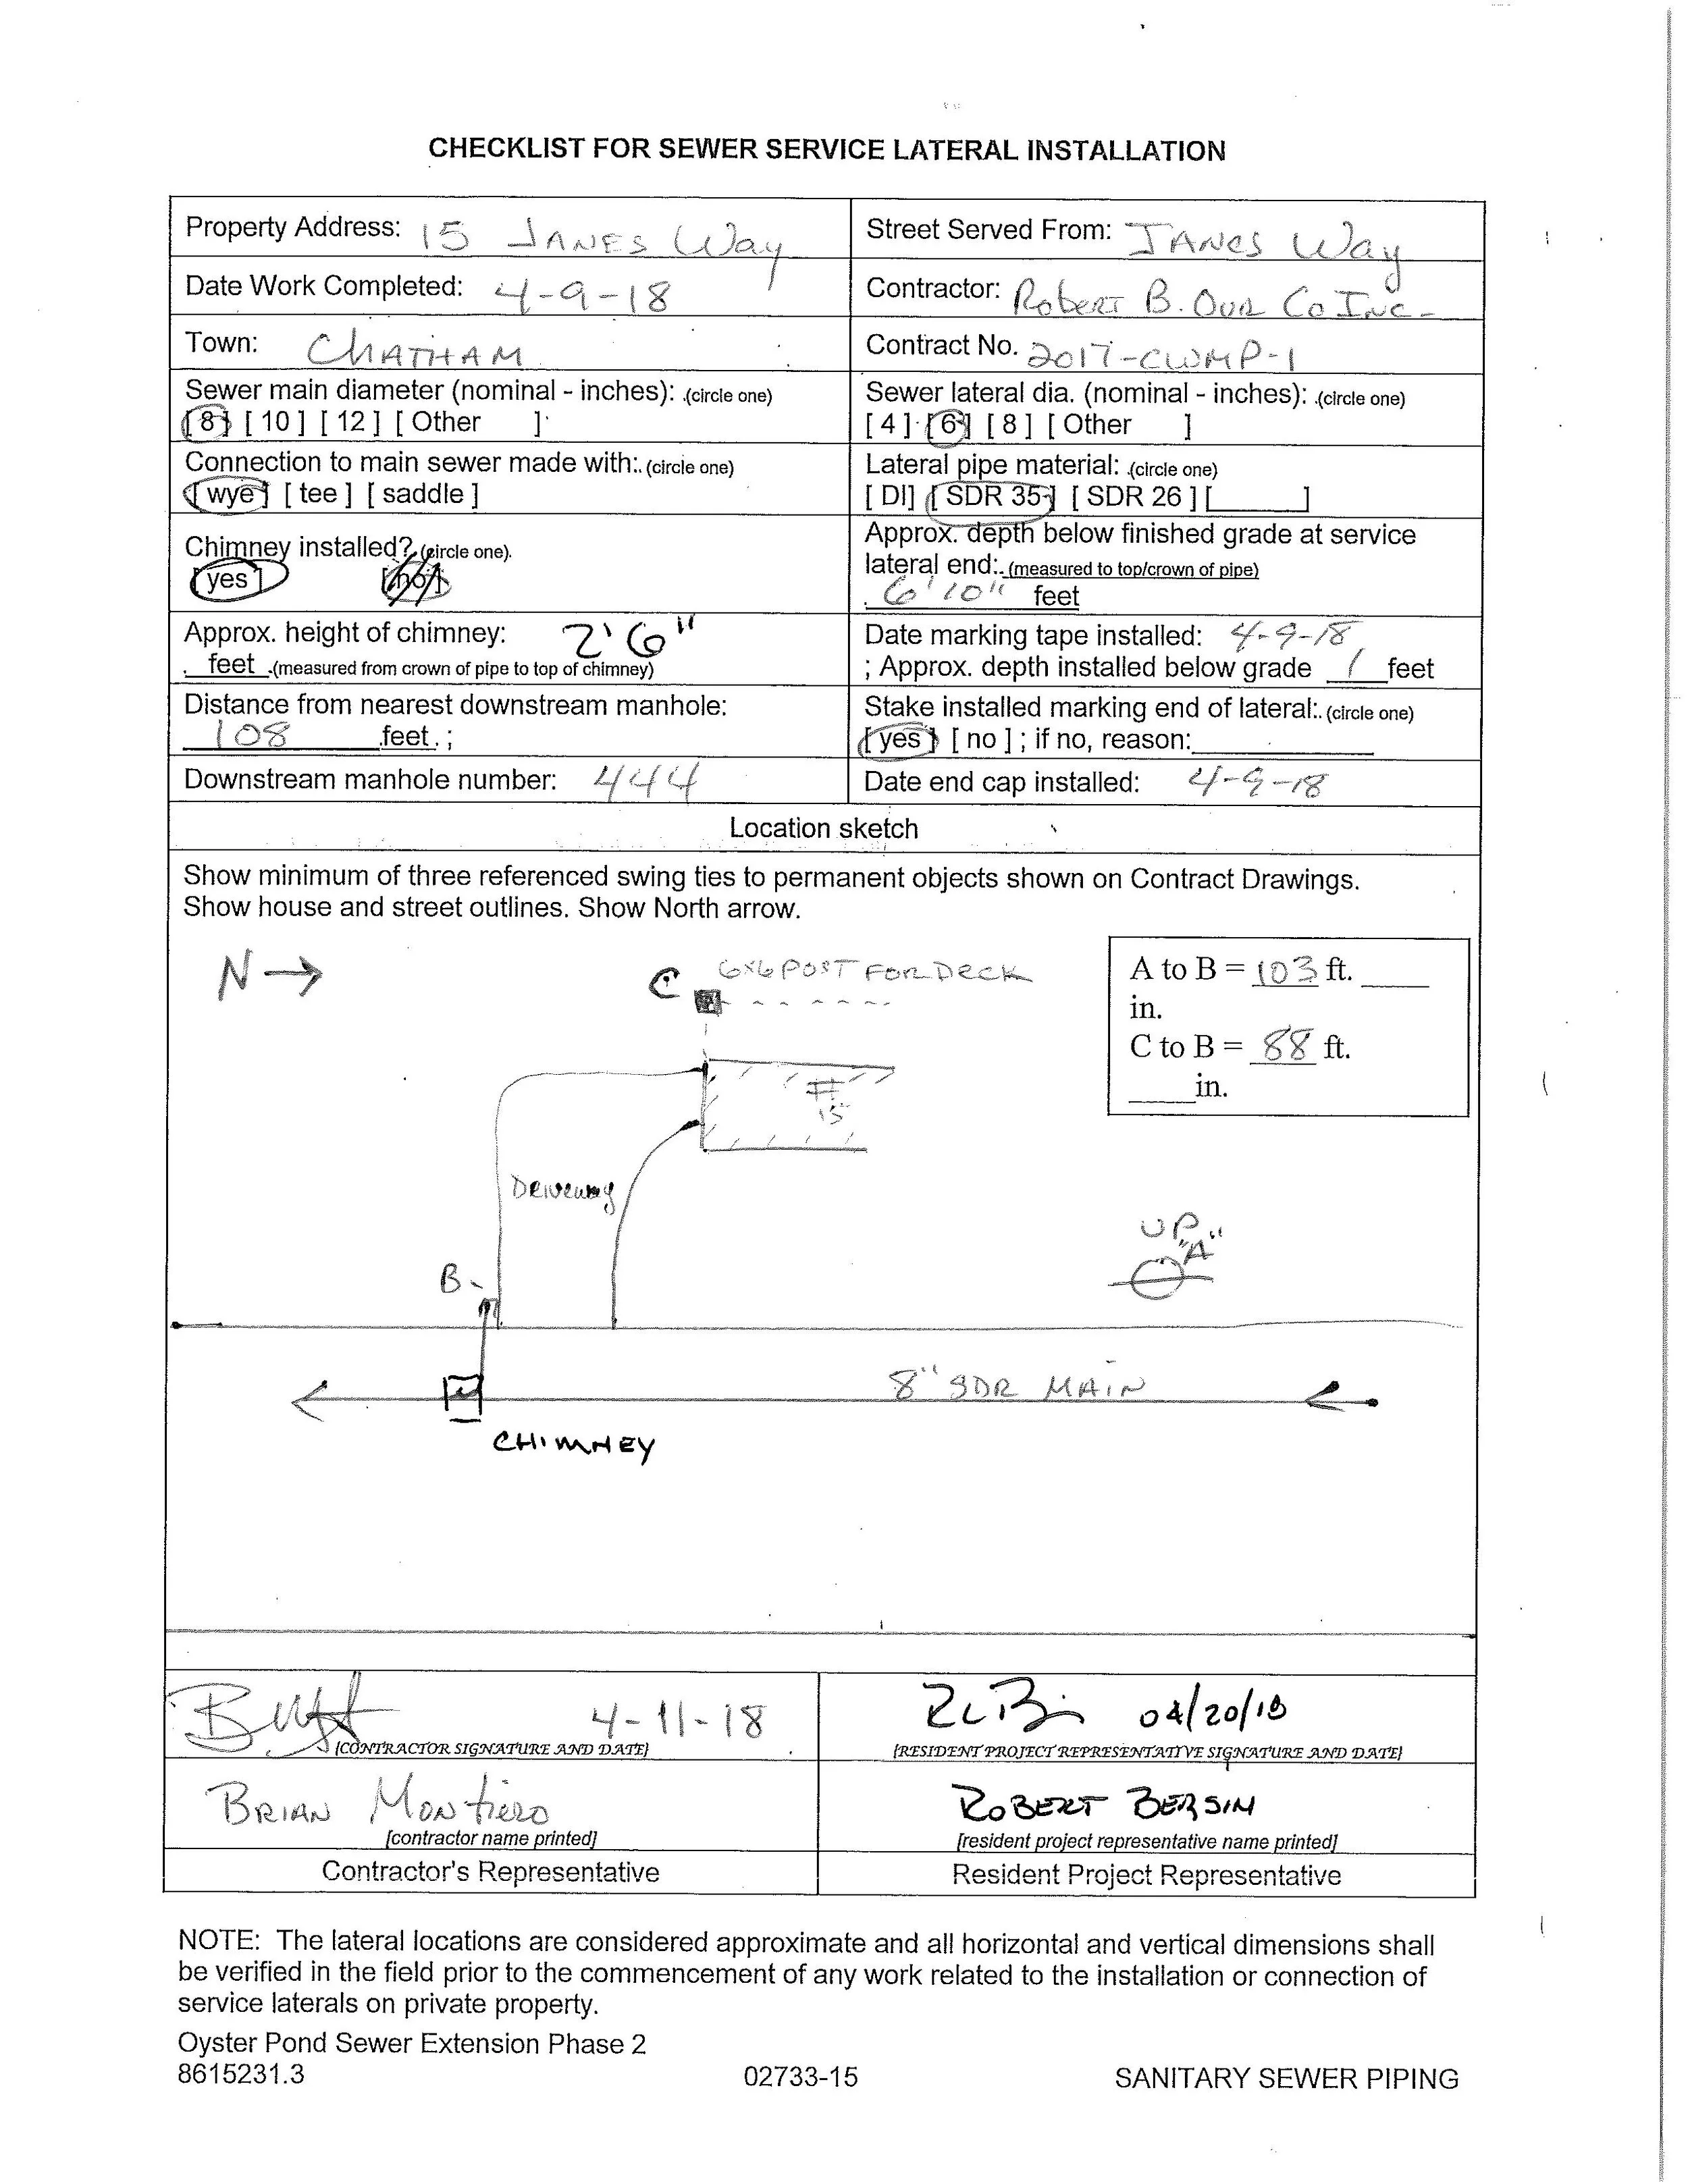 CHECKLIST FOR SEWER SERVICE LATERAL INSTALLATION
Property Address: 15 JANES Way
Street Served From: JANES Way
Date Work Completed: 4-9-18
Contractor: Robert B. Our Co Inc.
Town: CHATHAM
Contract No. 2017-CWMP-1
Sewer main diameter (nominal - inches): (circle one)
[ 8 ] [ 10 ] [ 12 ] [ Other ]
Sewer lateral dia. (nominal - inches): (circle one)
[ 4 ] [ 6 ] [ 8 ] [ Other ]
Connection to main sewer made with: (circle one)
[ wye ] [ tee ] [ saddle ]
Lateral pipe material: (circle one)
[ DI] [ SDR 35 ] [ SDR 26 ] [ ]
Chimney installed? (circle one).
[ yes ] [ no ]
Approx. depth below finished grade at service
lateral end: (measured to top/crown of pipe)
6'10" feet
Approx. height of chimney: 2'6"
feet (measured from crown of pipe to top of chimney)
Date marking tape installed: 4-9-18
; Approx. depth installed below grade 1 feet
Distance from nearest downstream manhole:
108 feet ;
Stake installed marking end of lateral: (circle one)
[ yes ] [ no ] ; if no, reason:
Downstream manhole number: 444
Date end cap installed: 4-9-18
Location sketch
Show minimum of three referenced swing ties to permanent objects shown on Contract Drawings.
Show house and street outlines. Show North arrow.
N
C 6x6 POST FOR DECK
A to B = 103 ft.
in.
C to B = 88 ft.
in.
#
15
Driveway
UP
"A"
B
8" SDR MAIN
CHIMNEY
4-11-18
[CONTRACTOR SIGNATURE AND DATE]
04/20/18
[RESIDENT PROJECT REPRESENTATIVE SIGNATURE AND DATE]
BRIAN Montiero
[contractor name printed]
ROBERT BERSIN
[resident project representative name printed]
Contractor's Representative
Resident Project Representative
NOTE: The lateral locations are considered approximate and all horizontal and vertical dimensions shall
be verified in the field prior to the commencement of any work related to the installation or connection of
service laterals on private property.
Oyster Pond Sewer Extension Phase 2
8615231.3 02733-15 SANITARY SEWER PIPING